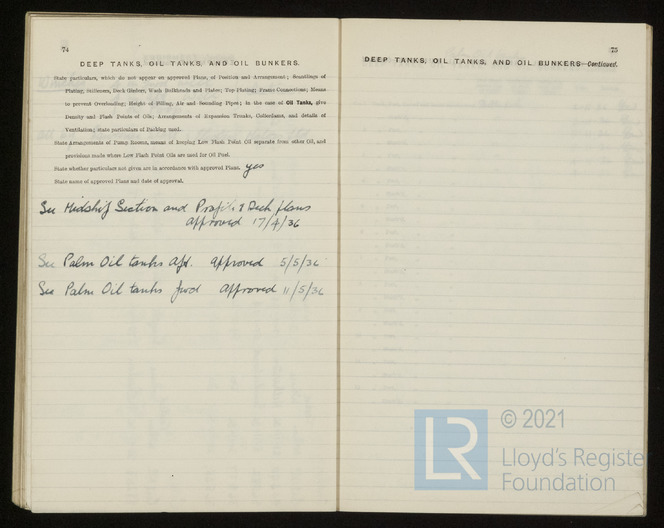 74
DEEP TANKS, OIL TANKS, AND OIL BUNKERS.
State particulars, which do not appear on approved Plans, of Position and Arrangement; Scantlings of
Plating, Stiffeners, Deck Girders, Wash Bulkheads and Plates; Top Plating; Frame Connections; Means
to prevent Overloading; Height of Filling, Air and Sounding Pipes; in the case of Oil Tanks, give
Density and Flash Points of Oils; Arrangements of Expansion Trunks, Cofferdams, and details of
Ventilation; state particulars of Packing used.
State Arrangements of Pump Rooms, means of keeping Low Flash Point Oil separate from other Oil, and
provisions made where Low Flash Point Oils are used for Oil Fuel.
State whether particulars not given are in accordance with approved Plans. yes
State name of approved Plans and date of approval.
See Midship Section and Profile & Deck plans
approved 17/4/36
See Palm Oil tanks Aft. approved 5/5/36
See Palm Oil tanks fwd approved 11/5/36
75
DEEP TANKS, OIL TANKS, AND OIL BUNKERS—Continued.
LR
© 2021
Lloyd's Register
Foundation